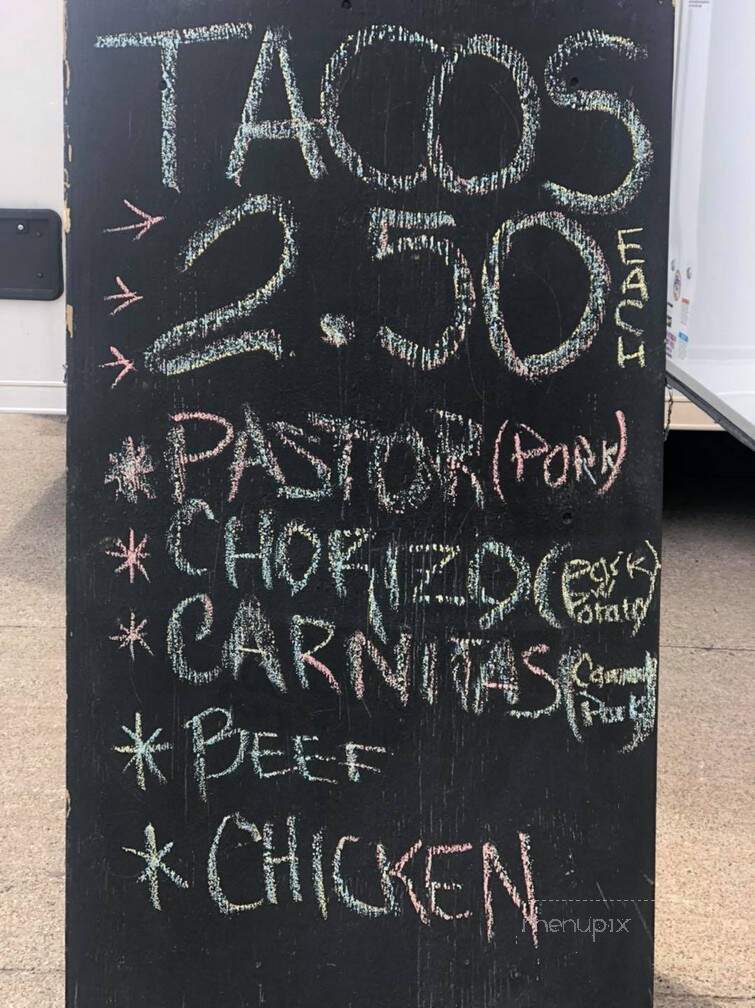 TACOS
2.50 EACH
* PASTOR (PORK)
* CHORIZO (Pork w/ Potato)
* CARNITAS (
* BEEF
* CHICKEN
menupix